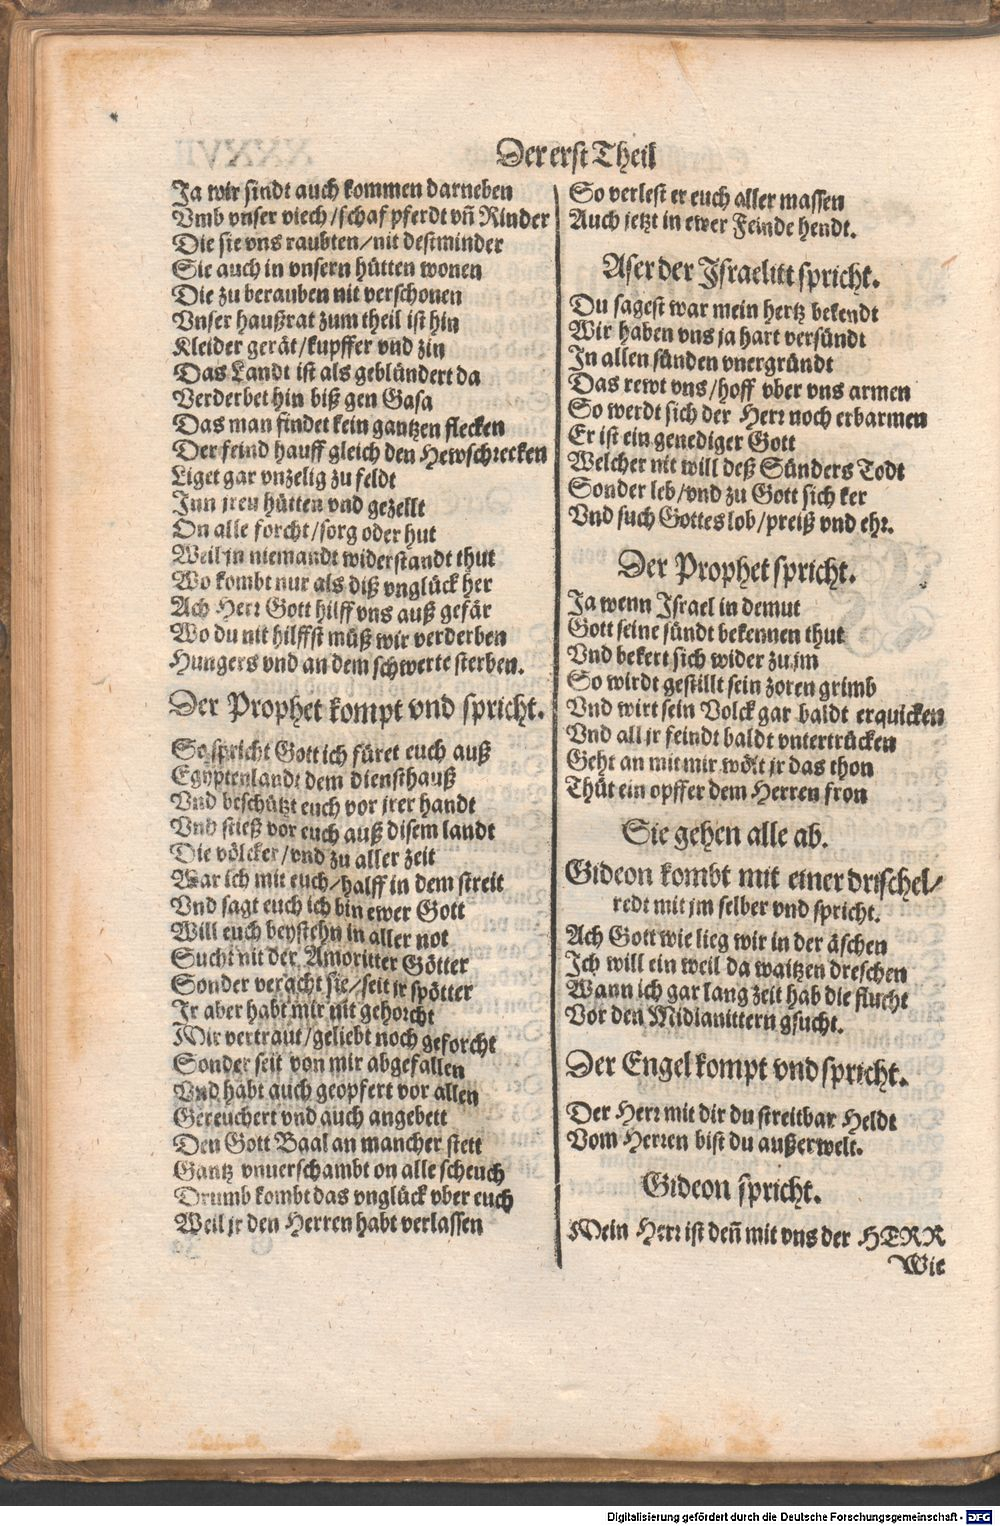 Der erst Theil
Ja wir sindt auch kommen darneben
Vmb vnser viech/schaf pferdt vñ Rinder
Die sie vns raubten/nit destminder
Sie auch in vnsern hütten wonen
Die zu berauben nit verschonen
Vnser haußrat zum theil ist hin
Kleider gerät/kupffer vnd zin
Das Landt ist als geblündert da
Verderbet hin biß gen Gasa
Das man findet kein gantzen flecken
Der feind hauff gleich den Hewschrecken
Liget gar vnzelig zu feldt
Inn jren hütten vnd gezellt
On alle forcht/sorg oder hut
Weil jn niemandt widerstandt thut
Wo kombt nur als diß vnglück her
Ach Herr Gott hilff vns auß gefär
Wo du nit hilffst müß wir verderben
Hungers vnd an dem schwerte sterben.
Der Prophet kompt vnd spricht.
So spricht Gott ich füret euch auß
Egyptenlandt dem diensthauß
Vnd beschützt euch vor jrer handt
Vnd stieß vor euch auß disem landt
Die völcker/vnd zu aller zeit
War ich mit euch/halff in dem streit
Vnd sagt euch ich bin ewer Gott
Will euch beystehn in aller not
Sucht nit der Amoritter Götter
Sonder veracht sie/seit jr spötter
Ir aber habt mir nit gehorcht
Mir vertraut/geliebt noch geforcht
Sonder seit von mir abgefallen
Vnd habt auch geopfert vor allen
Gereuchert vnd auch angebett
Den Gott Baal an mancher stett
Gantz vnuerschambt on alle scheuch
Drumb kombt das vnglück vber euch
Weil jr den Herren habt verlassen
So verlest er euch aller massen
Auch jetzt in ewer Feinde hendt.
Aser der Israelitt spricht.
Du sagest war mein hertz bekendt
Wir haben vns ja hart versündt
In allen sünden vnergründt
Das rewt vns/hoff vber vns armen
So werdt sich der Herr noch erbarmen
Er ist ein genediger Gott
Welcher nit will deß Sünders Todt
Sonder leb/vnd zu Gott sich ker
Vnd such Gottes lob/preiß vnd ehr.
Der Prophet spricht.
Ja wenn Israel in demut
Gott seine sündt bekennen thut
Vnd bekert sich wider zu jm
So wirdt gestillt sein zoren grimb
Vnd wirt sein Volck gar baldt erquicken
Vnd all jr feindt baldt vntertrücken
Geht an mit mir wölt jr das thon
Thüt ein opffer dem Herren fron
Sie gehen alle ab.
Gideon kombt mit einer drischel/
redt mit jm selber vnd spricht.
Ach Gott wie lieg wir in der äschen
Ich will ein weil da waitzen dreschen
Wann ich gar lang zeit hab die flucht
Vor den Midianittern gsucht.
Der Engel kompt vnd spricht.
Der Herr mit dir du streitbar Heldt
Vom Herren bist du außerwelt.
Gideon spricht.
Mein Herr ist deñ mit vns der HERR
Wie
Digitalisierung gefördert durch die Deutsche Forschungsgemeinschaft - DFG